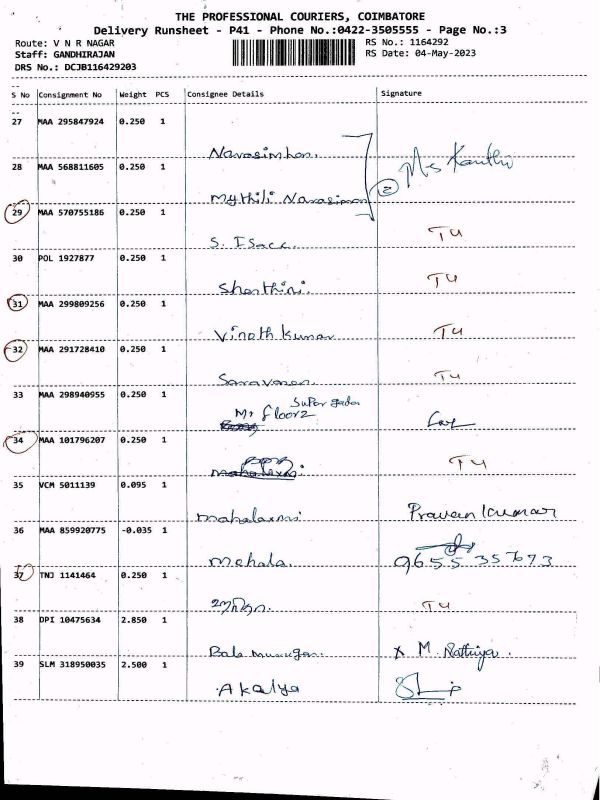 THE PROFESSIONAL COURIERS, COIMBATORE
Delivery Runsheet - P41 - Phone No.:0422-3505555 - Page No.:3
Route: V N R NAGAR RS No.: 1164292
Staff: GANDHIRAJAN RS Date: 04-May-2023
DRS No.: DCJB116429203
S No Consignment No Weight PCS Consignee Details Signature
27 MAA 295847924 0.250 1
Narasimhan.
28 MAA 568811605 0.250 1
Mythili Narasiman 2 Ms Kanthi
29 MAA 570755186 0.250 1
S. ISack. TU
30 POL 1927877 0.250 1
Shanthini. TU
31 MAA 299809256 0.250 1
Vinoth kumar TU
32 MAA 291728410 0.250 1
Saravanan. TU
33 MAA 298940955 0.250 1
Mr floorz
34 MAA 101796207 0.250 1
mahalaxmi TU
35 VCM 5011139 0.095 1
mahalaxmi Praveen kumar
36 MAA 859920775 -0.035 1
Mehala. 9655535673
37 TNJ 1141464 0.250 1
TU
38 DPI 10475634 2.850 1
Bala murugan. x M.
39 SLM 318950035 2.500 1
Akalya